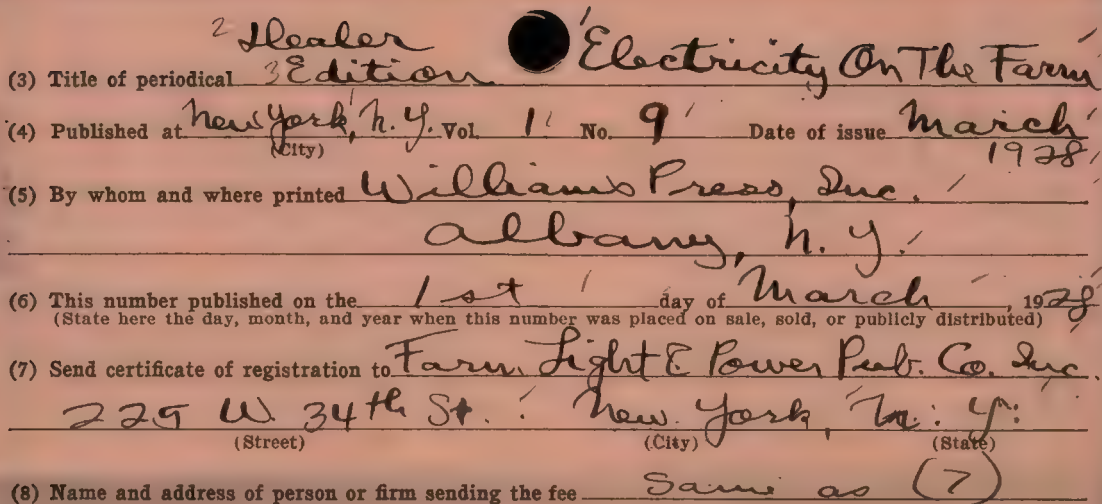 2 Dealer
(3) Title of periodical 3 Edition Electricity On The Farm
(4) Published at New York, N. Y. Vol. 1 No. 9 Date of issue March
(City) 1928
(5) By whom and where printed Williams Press, Inc.
Albany, N. Y.
(6) This number published on the 1st day of March, 1928
(State here the day, month, and year when this number was placed on sale, sold, or publicly distributed)
(7) Send certificate of registration to Farm Light & Power Pub. Co. Inc.
225 W. 34th St. New York, N. Y.
(Street) (City) (State)
(8) Name and address of person or firm sending the fee Same as (7)